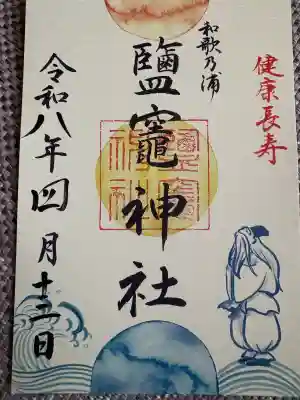 健康長寿
和歌乃浦
鹽竈神社
令和八年四月十三日